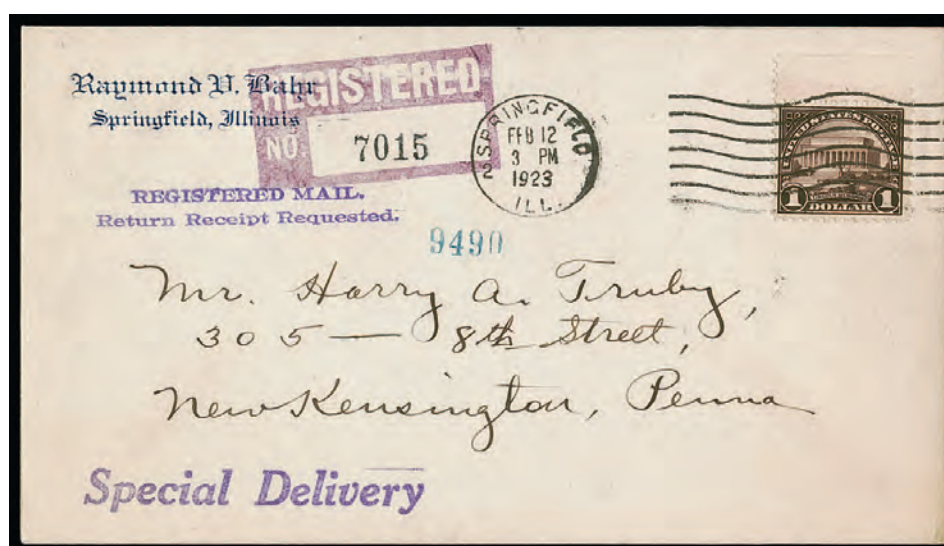 Raymond V. Bahr
Springfield, Illinois
REGISTERED
NO. 7015
SPRINGFIELD
2
FEB 12
3 PM
1923
ILL.
UNITED STATES POSTAGE
1 DOLLAR 1
REGISTERED MAIL.
Return Receipt Requested.
9490
Mr. Harry A. Truby,
305 — 8th Street,
New Kensington, Penna
Special Delivery